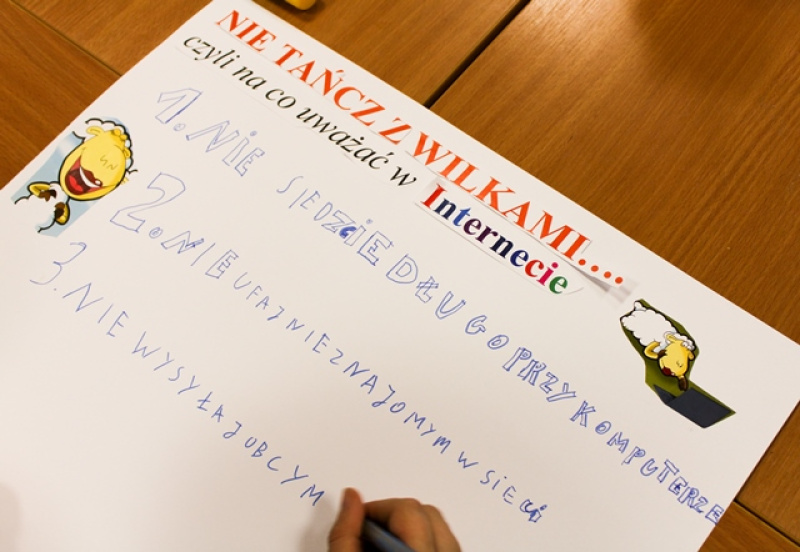 NIE TAŃCZ Z WILKAMI....
czyli na co uważać w Internecie
1. NIE SIEDZCIE DŁUGO PRZY KOMPUTERZE
2. NIE UFAJ NIEZNAJOMYM W SIECI
3. NIE WYSYŁAJ OBCYM